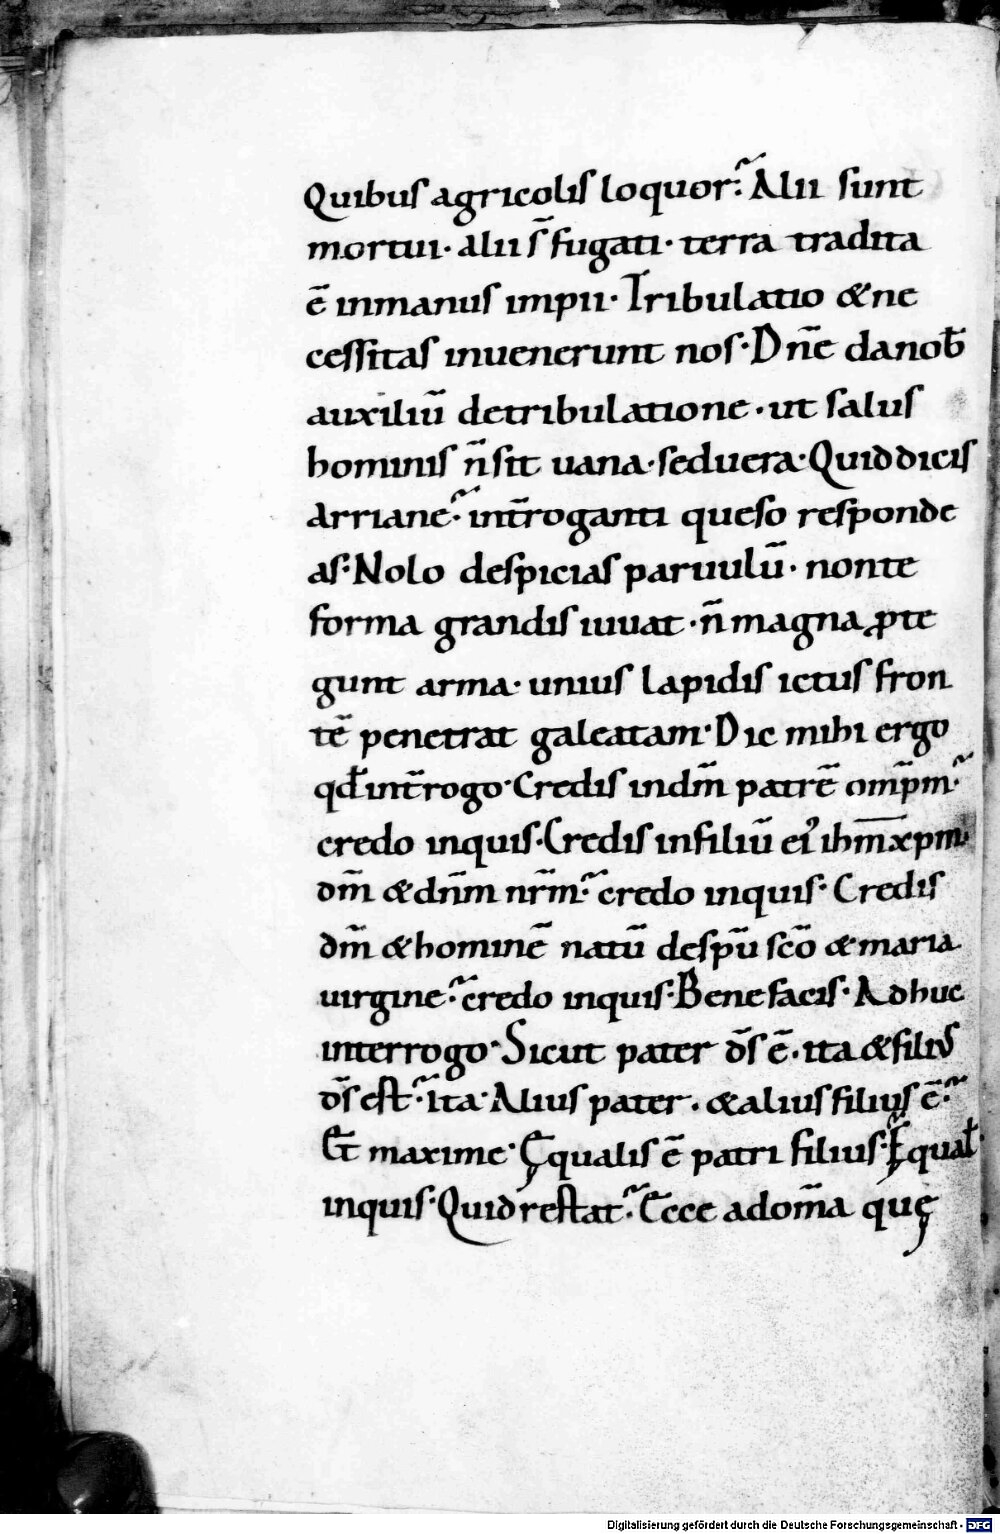 Quibus agricolis loquor? Alii sunt
mortui· alii s̄ fugati· terra tradita
ē inmanus impii· Tribulatio &ne
cessitas inuenerunt nos· Dn̄e danob̄
auxiliū detribulatione· ut salus
hominis n̄ sit uana· seduera· Quid dicis
arriane? int̄roganti queso responde
as· Nolo despicias paruulū· nonte
forma grandis iuuat· n̄ magna ꝓte
gunt arma· unius lapidis ictus fron
tē penetrat galeatam· Dic mihi ergo
qđ int̄rogo· Credis indm̄ patrē om̄pm̄?
credo inquis· Credis infiliū ei᾿ ihm̄ xpm̄
dm̄ &dn̄m nr̄m? credo inquis· Credis
dm̄ &hominē natū despū scō & maria
uirgine? credo inquis· Bene facis· Adhuc
interrogo· Sicut pater ds̄ ē· ita &filius
ds̄ est? ita· Alius pater· &alius filius ē?
Et maxime· Ęqualis ē patri filius? Ęqual̄
inquis· Quid restat? Ecce adom̄a quę
Digitalisierung gefördert durch die Deutsche Forschungsgemeinschaft - DFG